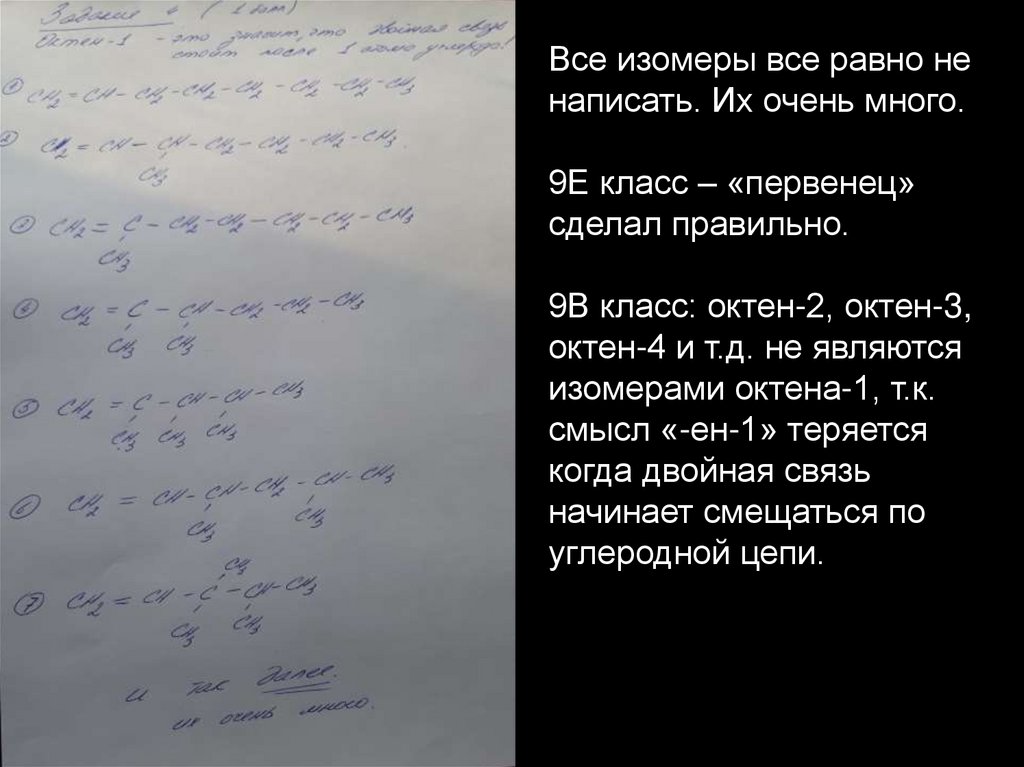 Задание 4 (1 балл)
Октен-1 - это значит, что двойная связь
стоит после 1 атома углерода!
① CH2 = CH - CH2 - CH2 - CH2 - CH2 - CH2 - CH3
② CH2 = CH - CH - CH2 - CH2 - CH2 - CH3
CH3
③ CH2 = C - CH2 - CH2 - CH2 - CH2 - CH3
CH3
④ CH2 = C - CH - CH2 - CH2 - CH3
CH3 CH3
⑤ CH2 = C - CH - CH - CH3
CH3 CH3 CH3
⑥ CH2 = CH - CH - CH2 - CH - CH3
CH3 CH3
CH3
⑦ CH2 = CH - C - CH - CH3
CH3 CH3
и так далее.
их очень много.
Все изомеры все равно не
написать. Их очень много.
9Е класс – «первенец»
сделал правильно.
9В класс: октен-2, октен-3,
октен-4 и т.д. не являются
изомерами октена-1, т.к.
смысл «-ен-1» теряется
когда двойная связь
начинает смещаться по
углеродной цепи.